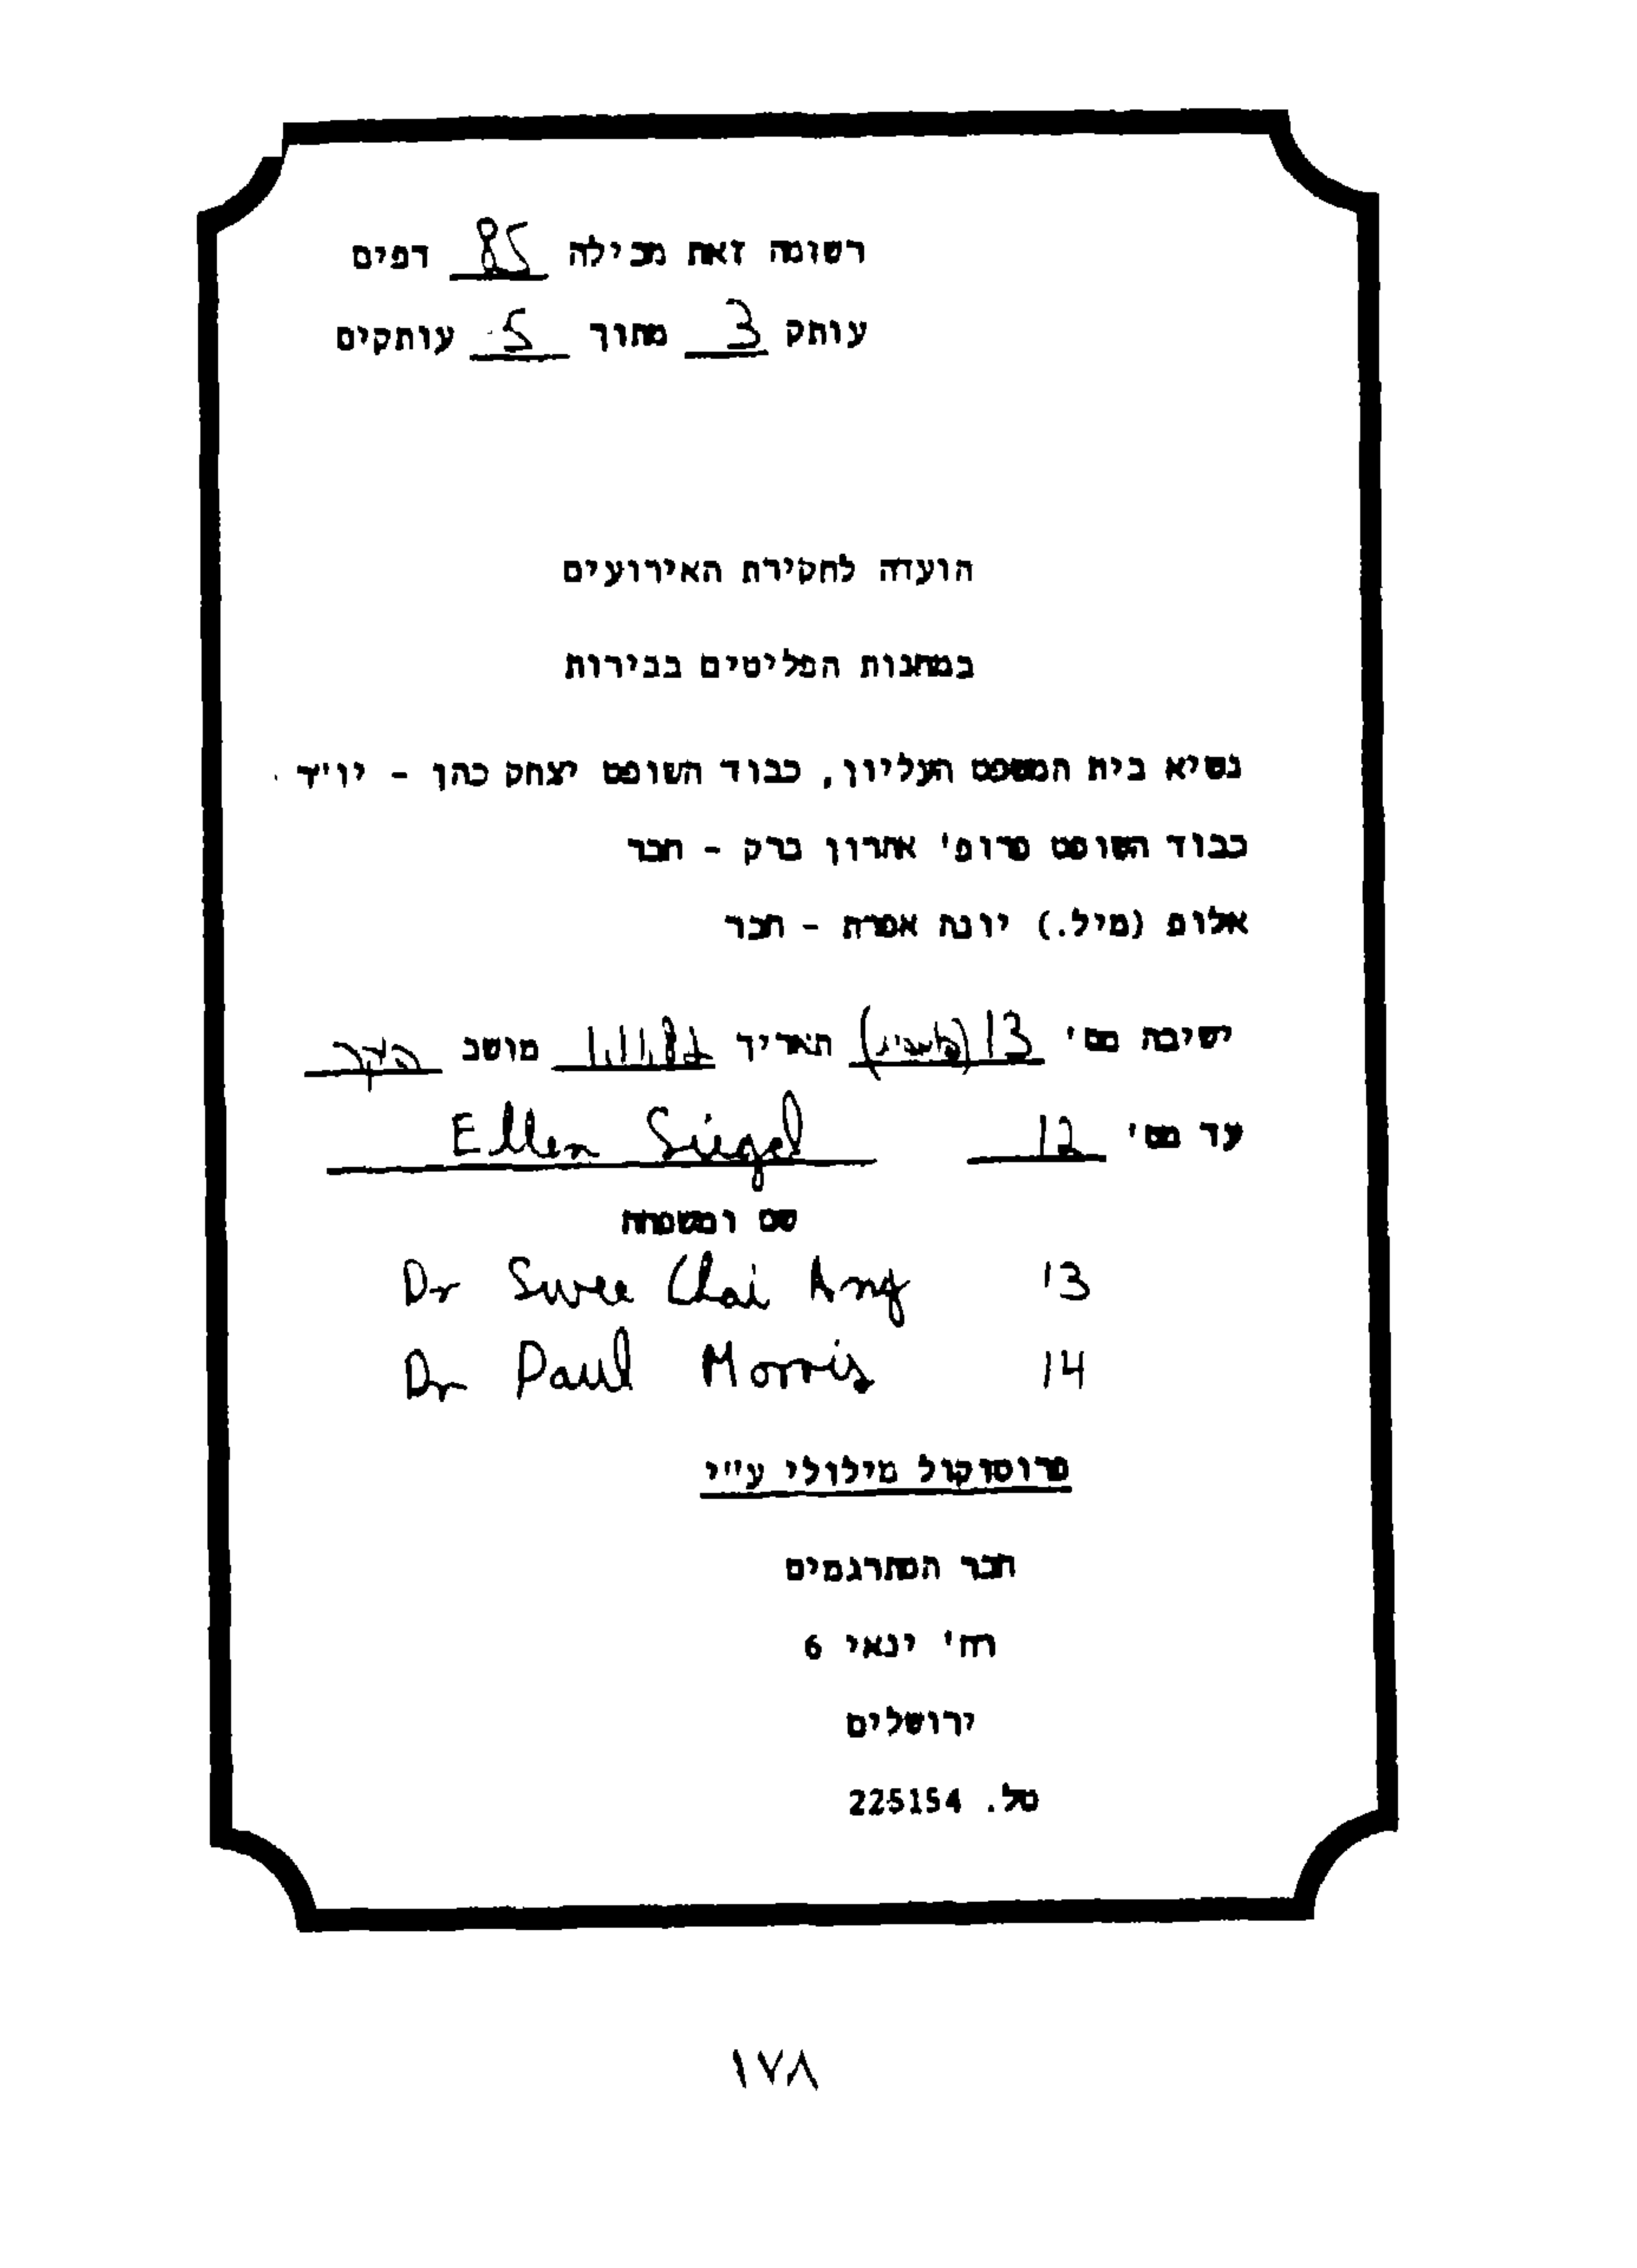 רשומה זאת מכילה 85 דפים
עותק 3 מתוך 5 עותקים
הועדה לחקירת האירועים
במחנות הפליטים בבירות
נשיא בית המשפט העליון, כבוד השופט יצחק כהן - יו"ד
כבוד השופט פרופ' אהרון ברק - חבר
אלוף (מיל.) יונה אפרת - חבר
ישיבה מס' 13 תאריך 1.11.82 מושב בוקר
עד מס' 12 Ellen Siegel
שם ומשפחה
Dr Swee Chai Ang 13
Dr Paul Morris 14
פרוטוקול מילולי ע"י
חבר המתרגמים
רח' ינאי 6
ירושלים
טל. 225154
١٧٨